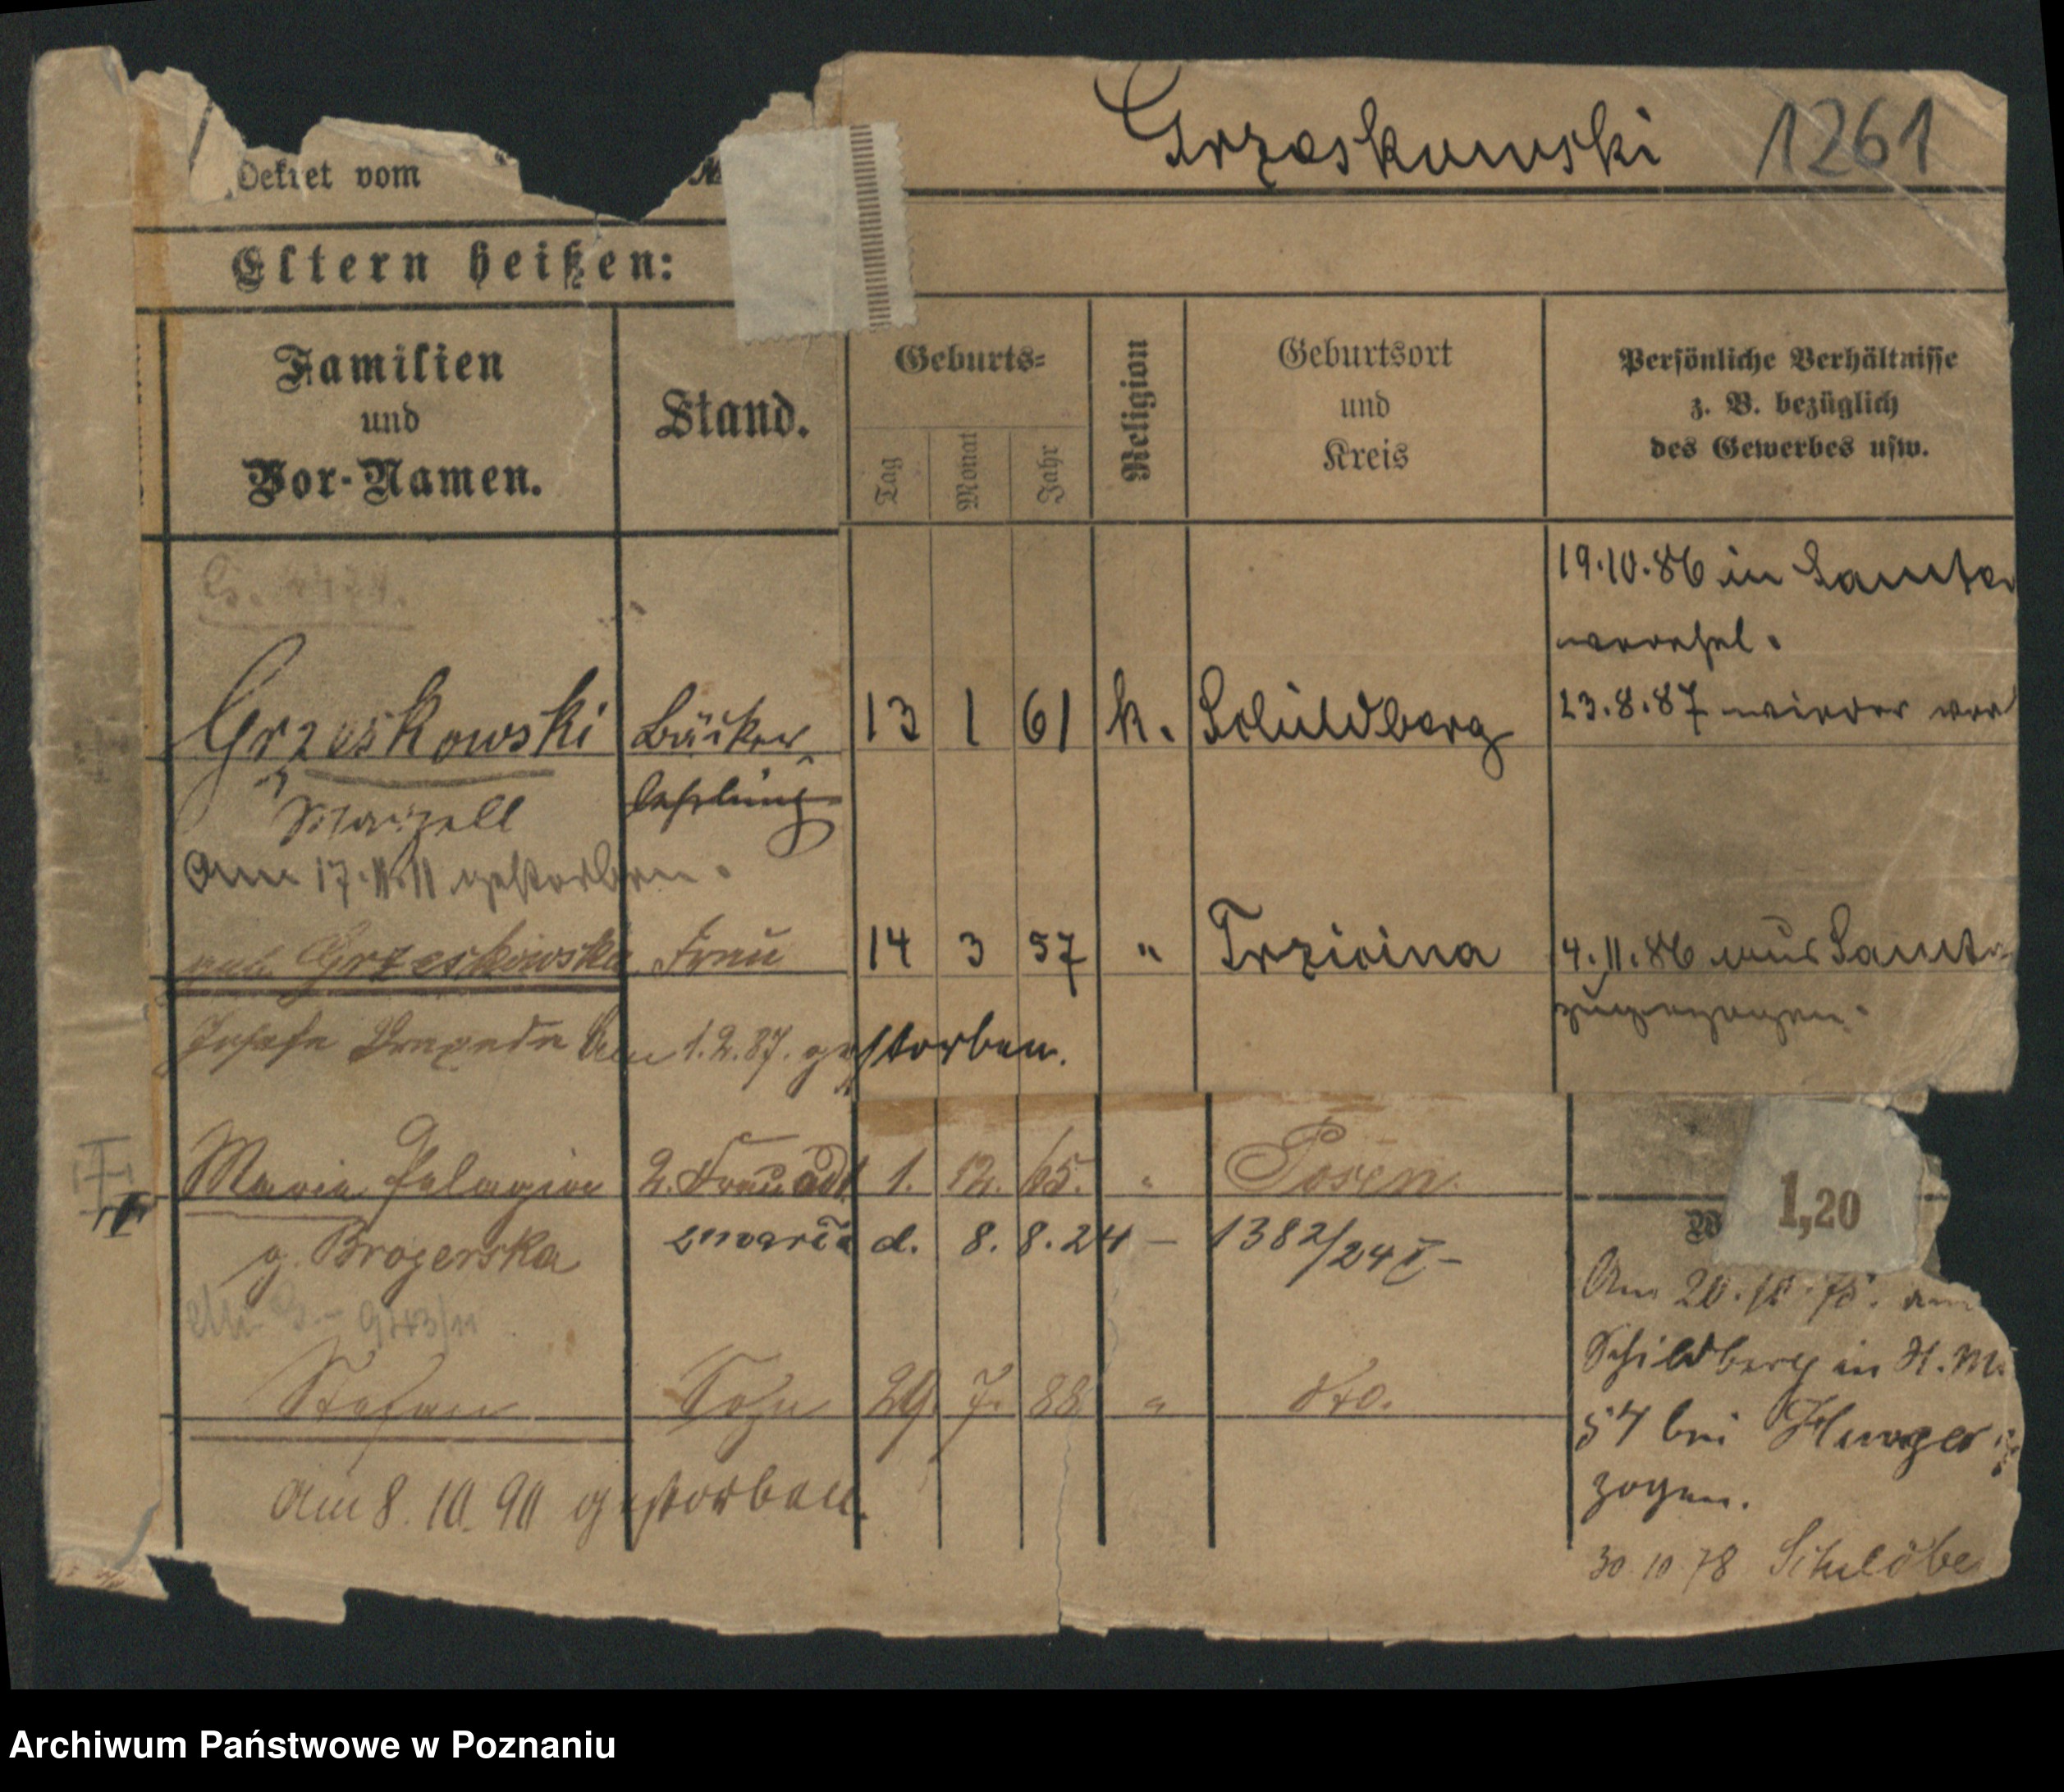 Grzeskowski 1261
Dekret vom
Eltern heißen:
Familien
und
Vor-Namen.
Stand.
Geburts-
Tag
Monat
Jahr
Religion
Geburtsort
und
Kreis
Persönliche Verhältnisse
z. B. bezüglich
des Gewerbes usw.
19.10.86 in Samter
13.8.87 wieder
Grzeskowski Bäcker 13 1 61 k. Schildberg
Marzell lehrling
Am 17.11.11 gestorben.
Grzeskowska Frau 14 3 57 " Trzicina 4.11.86 aus Samter
zugezogen.
Josefa am 1.2.87. gestorben.
Maria Pelagia 2. Frau 1. 12. 65. " Posen.
g. Brogerska zmarła d. 8. 8. 24 – 1382/24 I –
1,20
Am 20.
Schildberg in
57 bei
zogen.
Stefan Sohn 29. 7. 88 " dto.
am 8. 10. 90 gestorben.
30 10 78 Schildbe
Archiwum Państwowe w Poznaniu